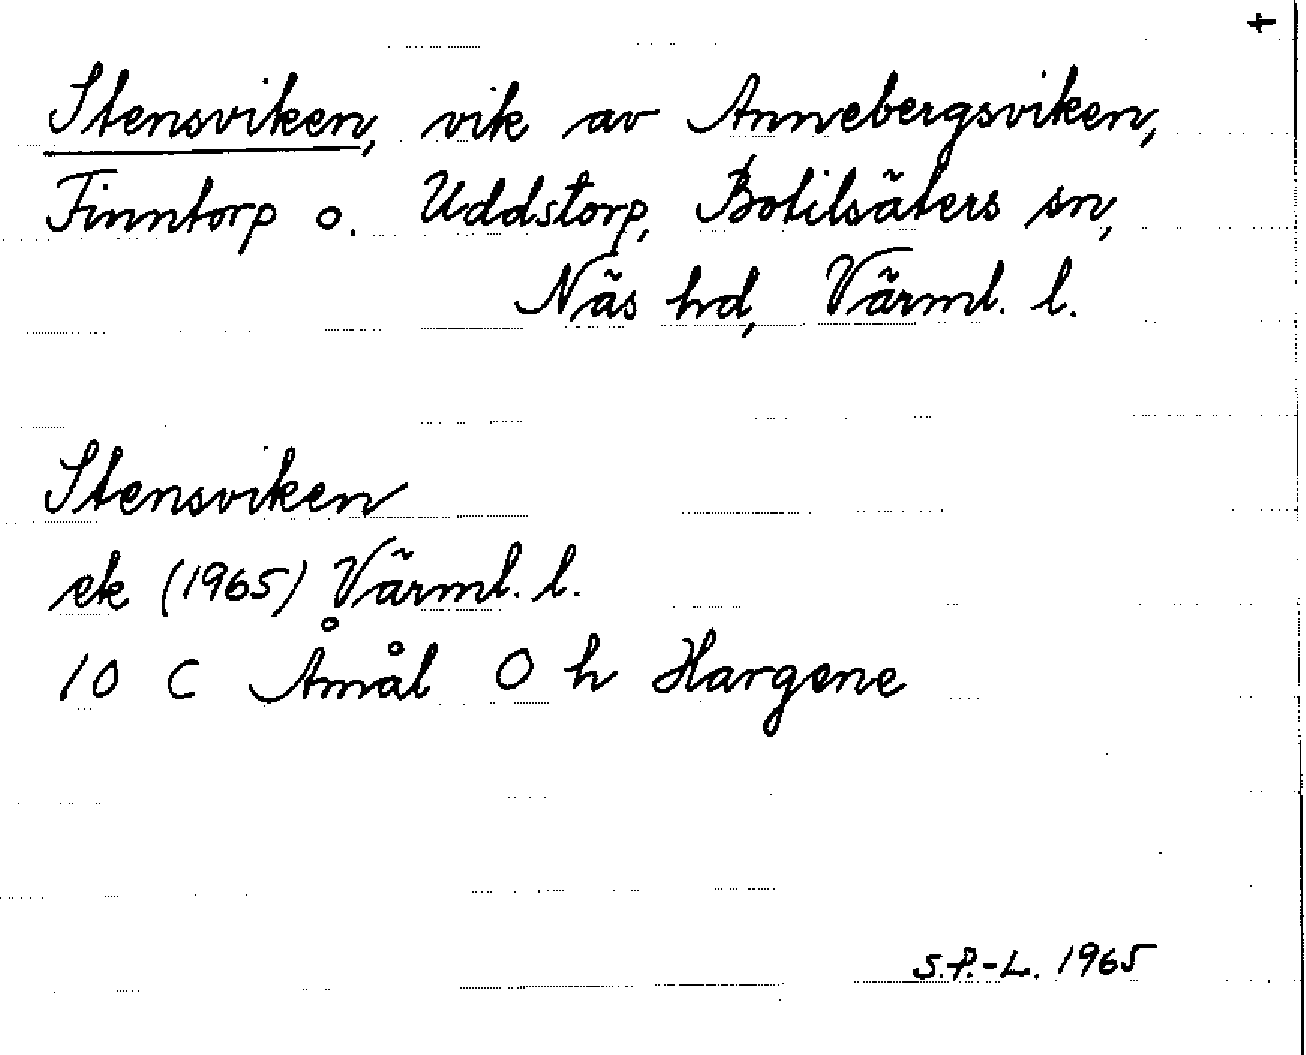 +
Stensviken, vik av Annebergsviken,
Finntorp o. Uddstorp, Botilsäters sn,
Näs hd, Värml. l.
Stensviken
ek (1965) Värml. l.
10 C Åmål O h Hargene
S.P.-L. 1965